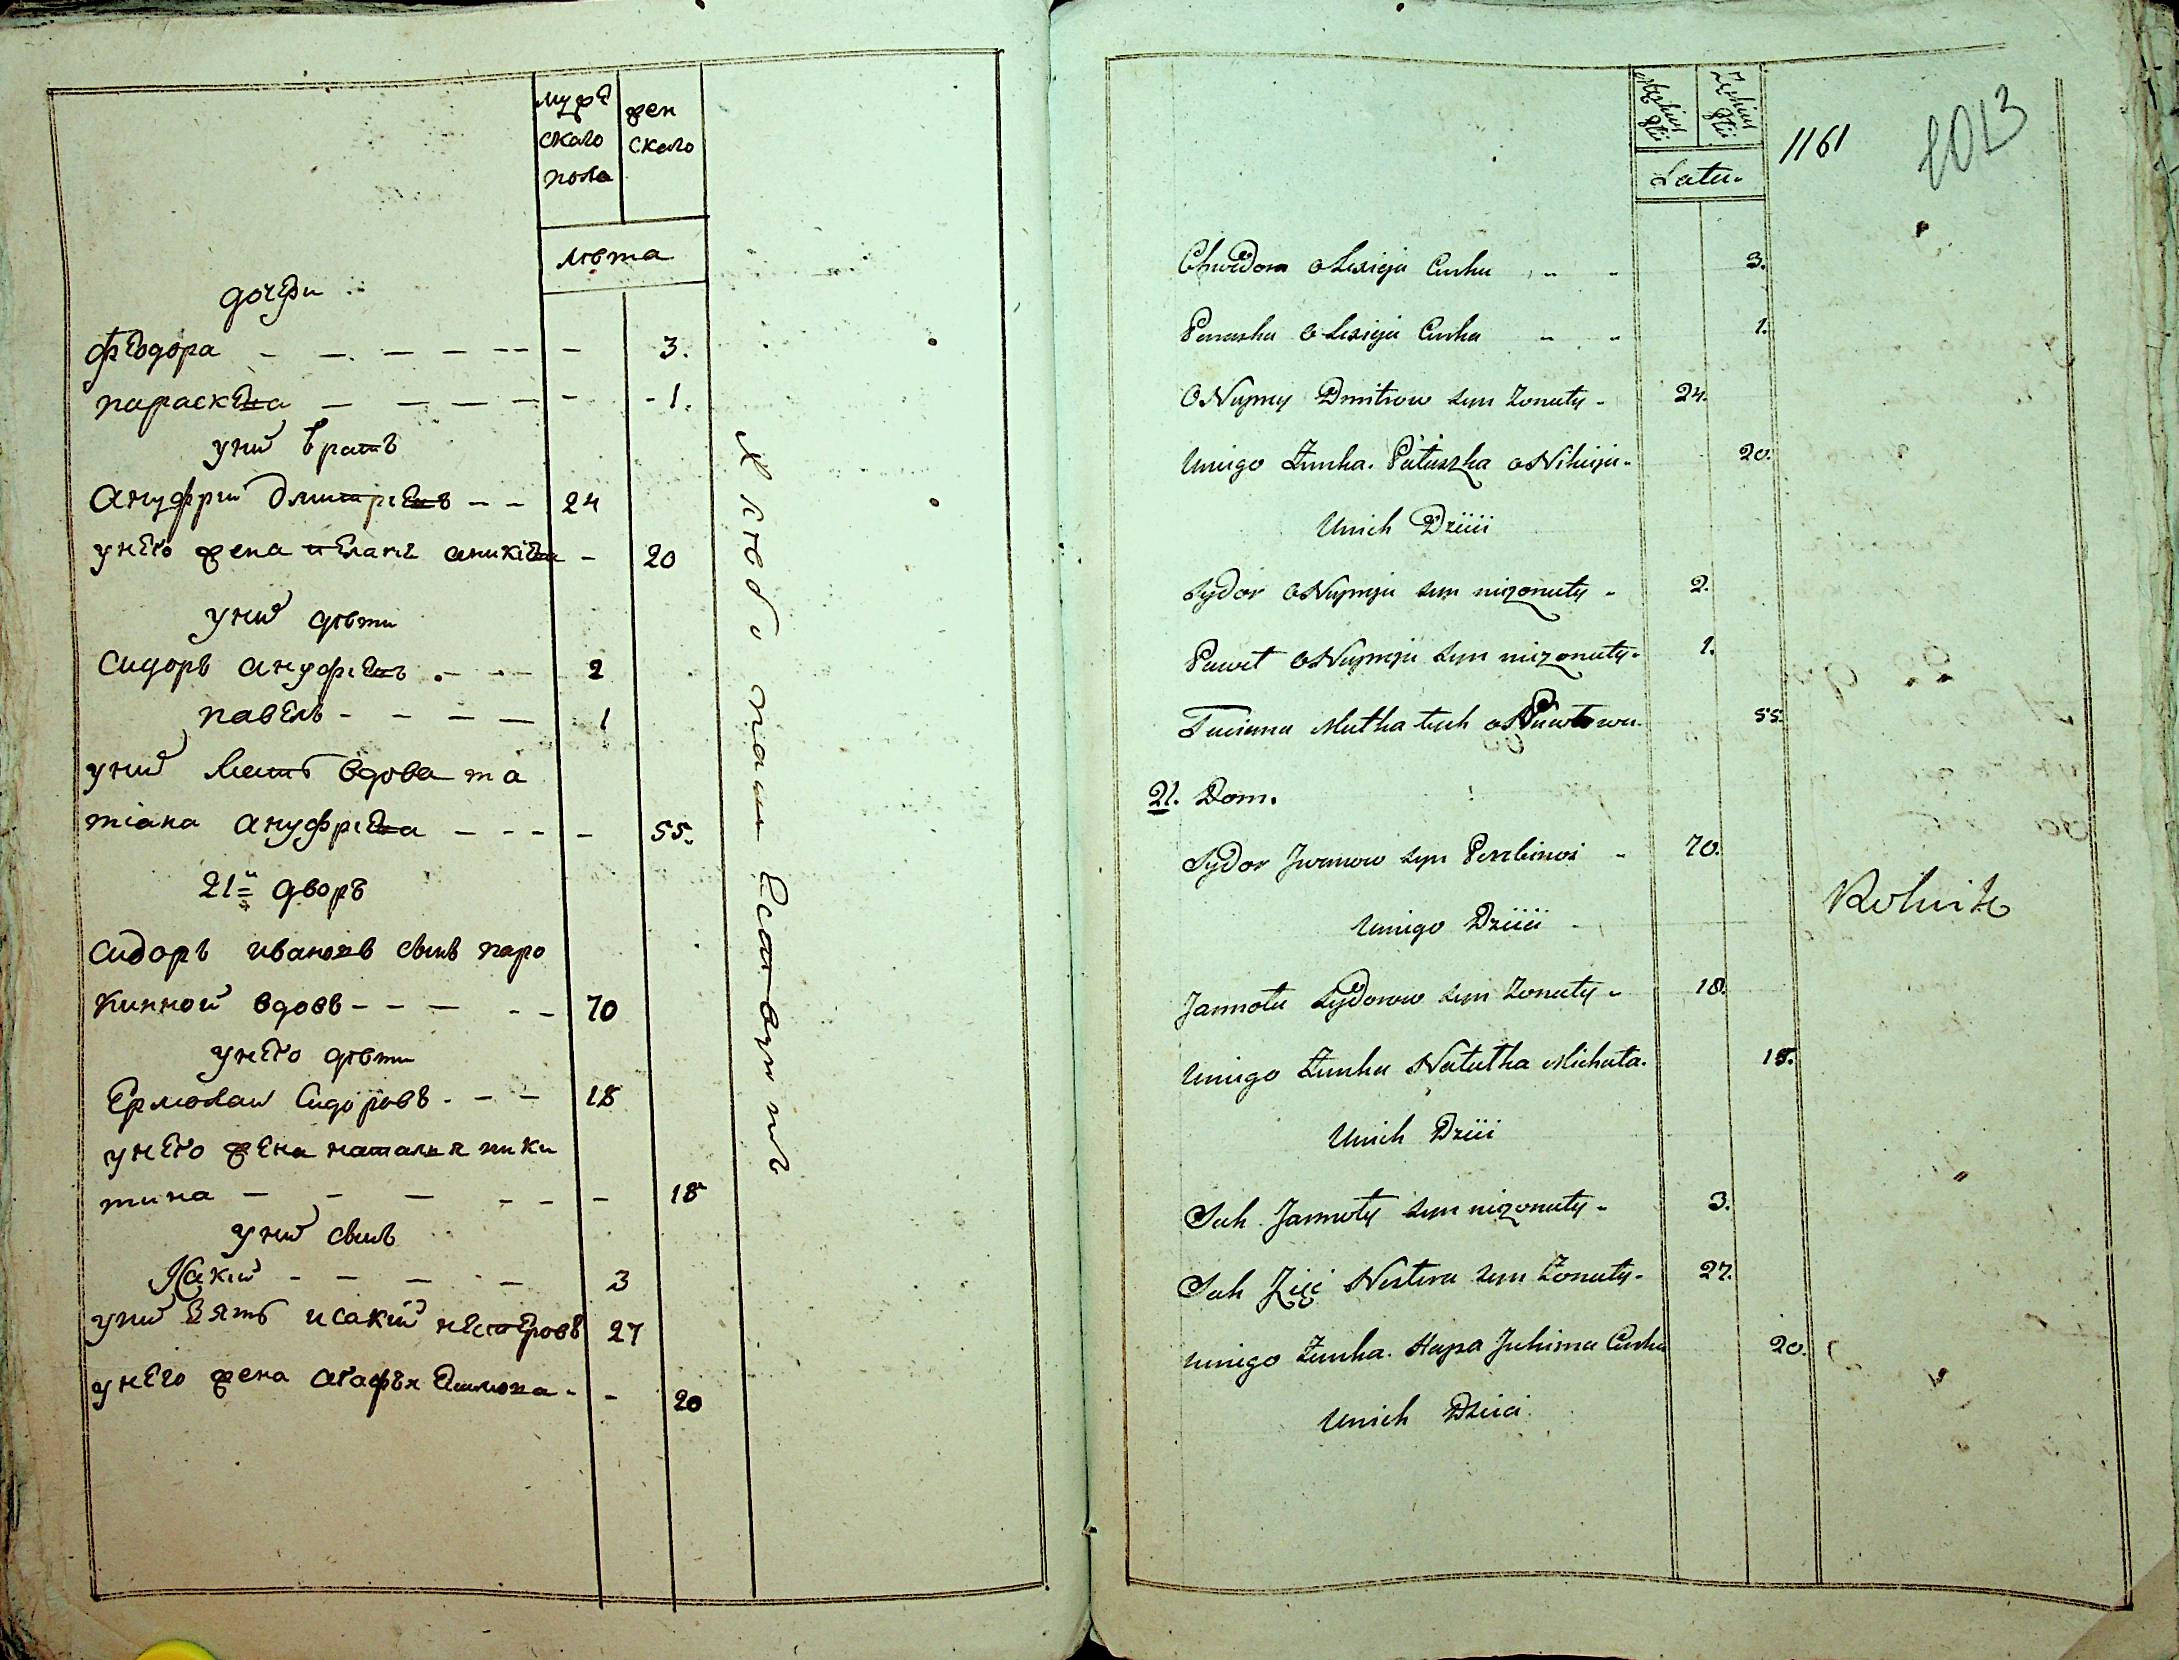 мужѣ
ского
пола
жен
ского
лѣта
дочери
Феодора - - - - - - 3.
параскева - - - - - - 1.
у ний братъ
Ануфрий Дмитриевъ - - 24
у него жена пелагея аникиева - 20
у ний дѣти
Сидоръ ануфриевъ - - - 2
павелъ - - - - 1
у ний мать вдова та
тiана ануфриева - - - - 55.
21й дворъ
Сидоръ ивановъ сынъ паро
кинной вдовъ - - - - - 70
у него дѣти
Ермолай Сидоровъ - - - 18
у него жена наталья ники
тина - - - - - - 18
у ний сынъ
Исакий - - - - 3
у ний зять исакий нестеровъ 27
у него жена агафья - - 20
Хлебо паш
1161
1013
Latu.
Chwedora Olexieja Curka 3.
Paraska Olexieja Curka 1.
ONupry Dmitrow syn Zonaty - 24.
Uniego Zunka. ONikieja - 20.
Unich Dzieci
Sydor ONupryja syn niezonaty - 2.
Paweł ONupryja syn niezonaty - 1.
Taciana Matka tych 55.
21. Dom.
Sydor Jwanow syn - 70.
Uniego Dzieci -
Jarmoła Sydorow syn Zonaty - 18.
Uniego Zunka Natałka Michała. 18.
Unich Dzieci
Sak Jarmoły syn niezonaty - 3.
Sak Zięć Nestera syn Zonaty - 27.
Uniego Zunka. Hapa Juchima Curka 20.
Unich Dzieci
Rolnik